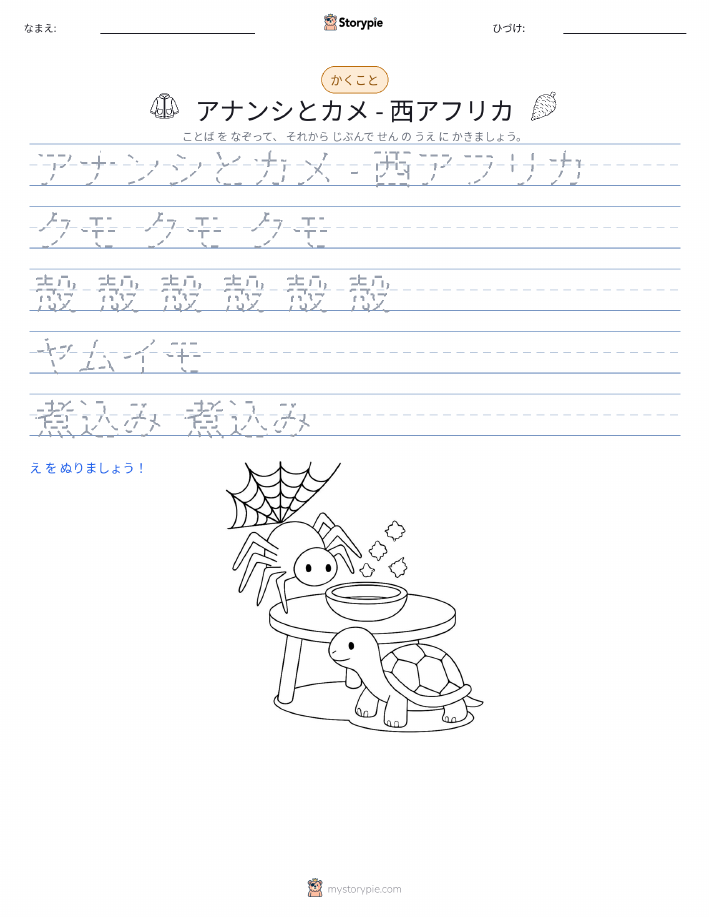 なまえ:
Storypie
ひづけ:
かくこと
アナンシとカメ - 西アフリカ
ことば を なぞって、 それから じぶんで せん の うえ に かきましょう。
アナンシとカメ - 西アフリカ
クモ クモ クモ
殻 殻 殻 殻 殻 殻
ヤムイモ
煮込み 煮込み
え を ぬりましょう！
mystorypie.com